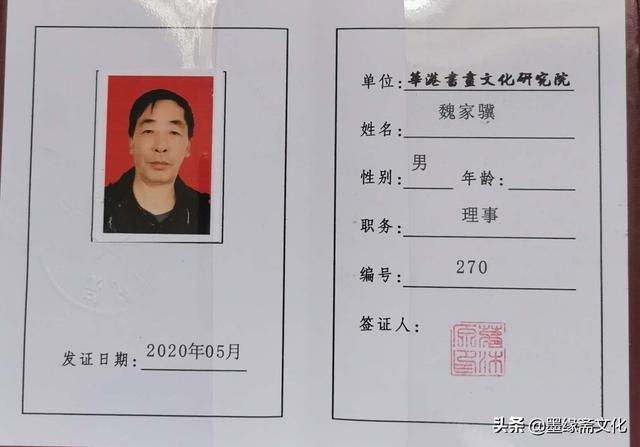 发证日期: 2020年05月
单位: 華港書畫文化研究院
姓名: 魏家骥
性别: 男 年龄:
职务: 理事
编号: 270
签证人:
头条 @墨缘斋文化